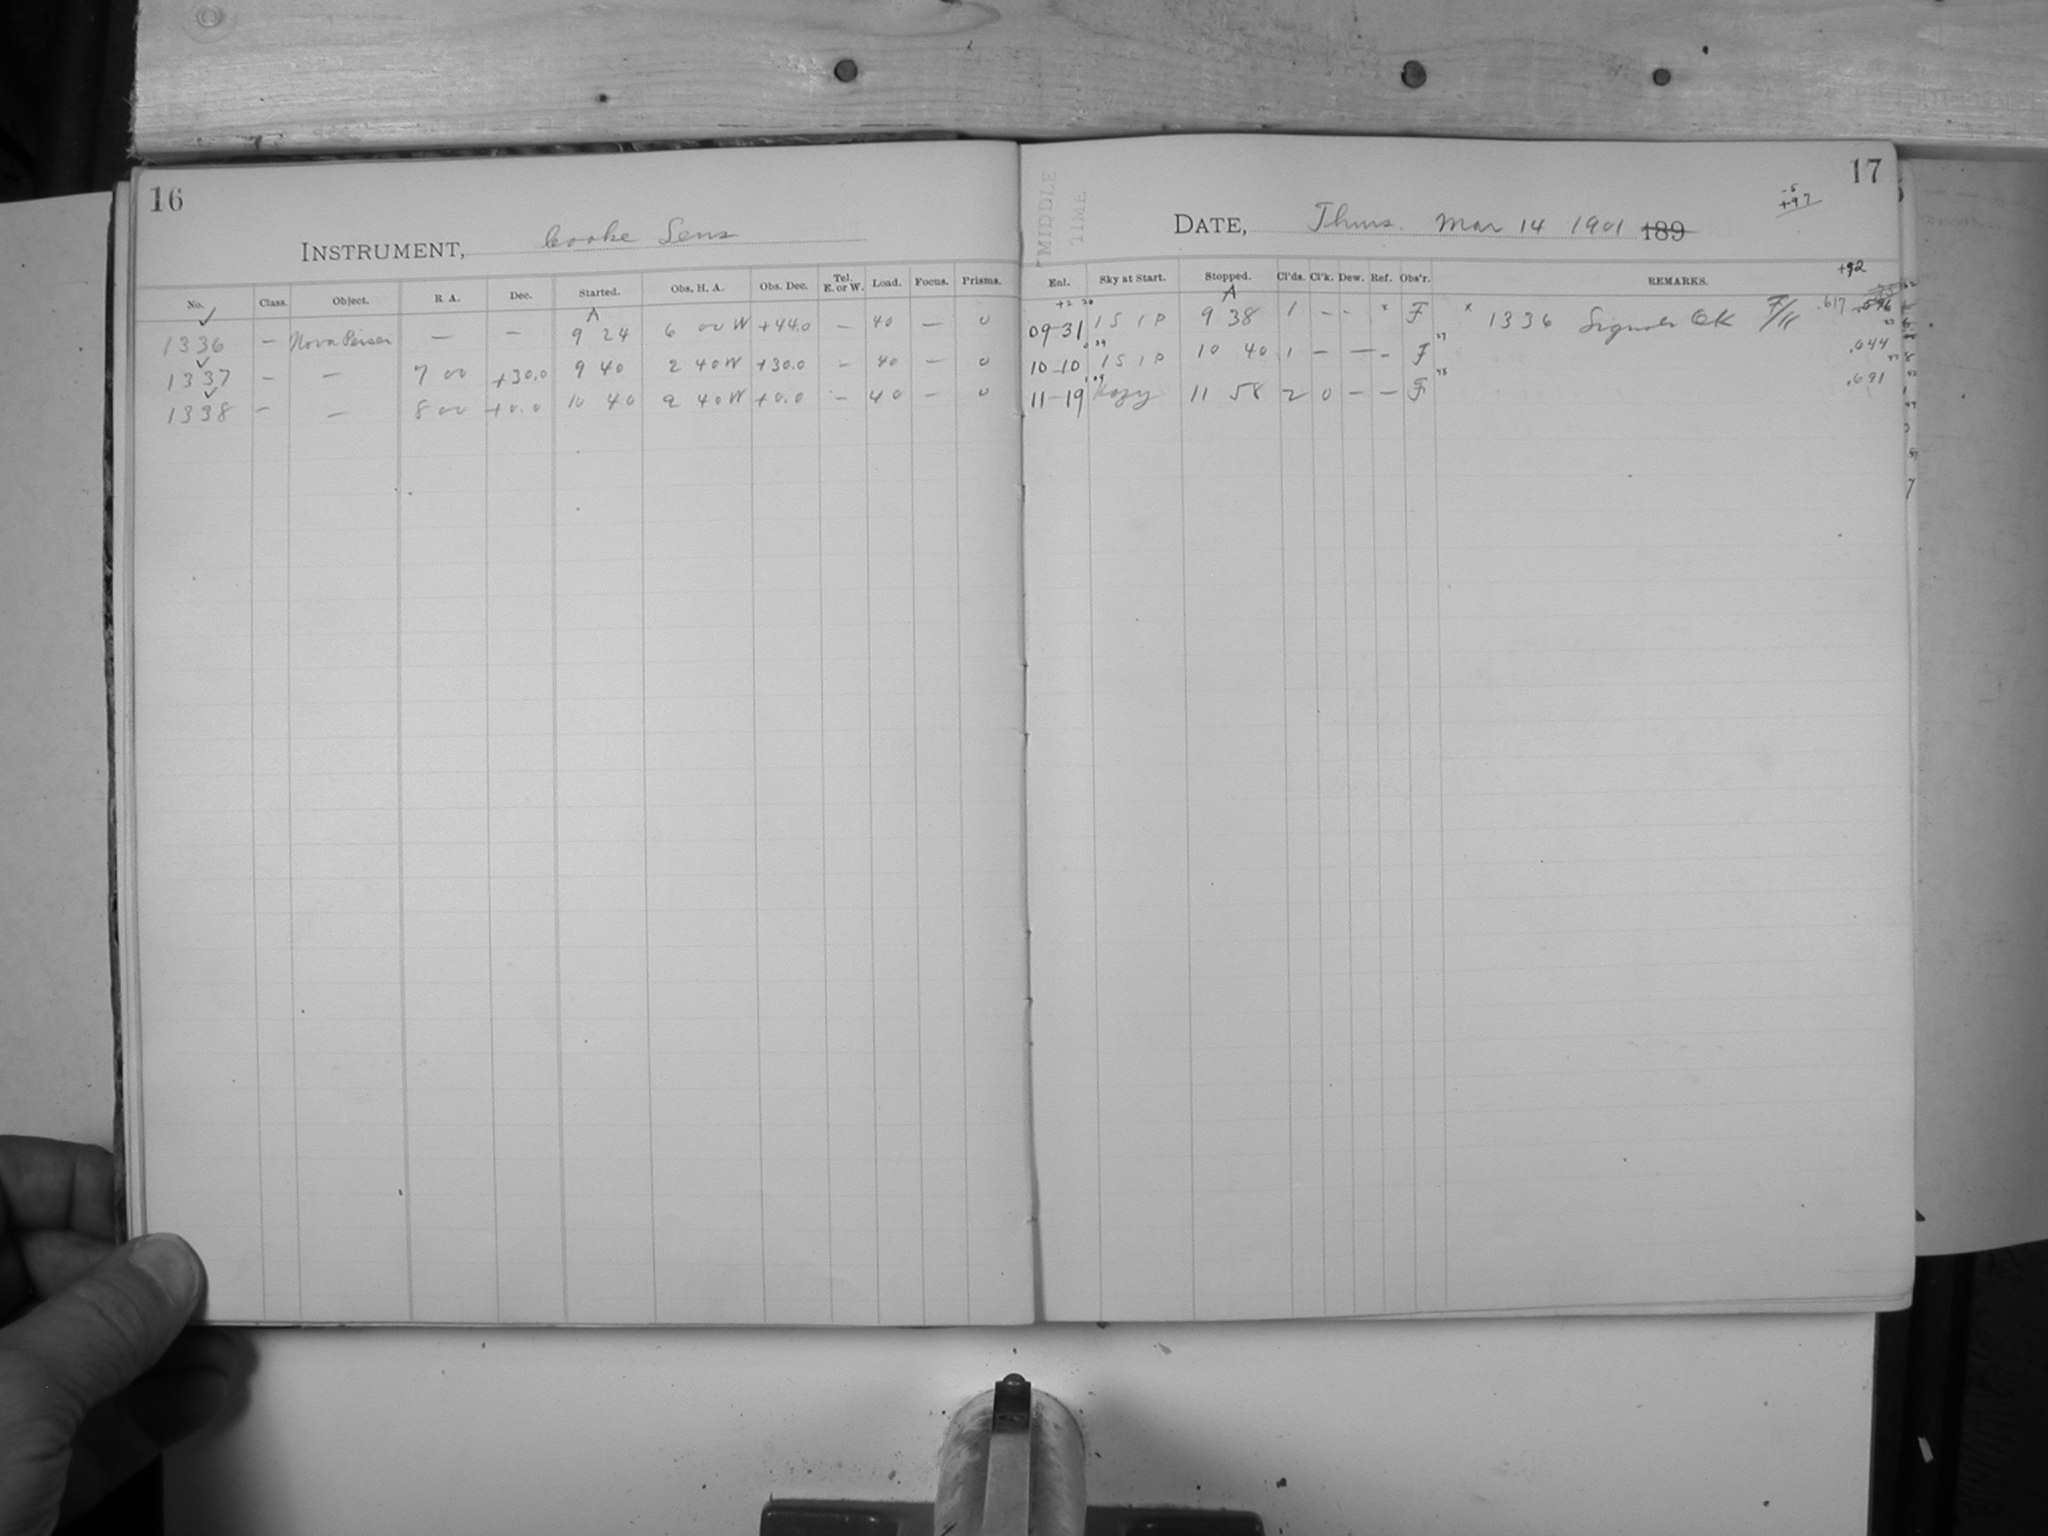 16
INSTRUMENT, Cooke Lens
No. Class. Object. R. A. Dec. Started. Obs. H. A. Obs. Dec. Tel. E. or W. Load. Focus. Prisms.
A
1336 — Nova Persei — — 9 24 6 00 W +44.0 — 40 — 0
1337 — — 7 00 +30.0 9 40 2 40 W +30.0 — 40 — 0
1338 — — 8 00 +0.0 10 40 2 40 W +0.0 — 40 — 0
17
MIDDLE
TIME
-5
+97
DATE, Thurs. Mar 14 1901 189
+92
Enl. Sky at Start. Stopped. Cl'ds. Cl'k. Dew. Ref. Obs'r. REMARKS.
+2 20 A
09-31 1 S 1 P 9 38 1 — — x F x 1336 Signals OK F/11 .617
10-10 1 S 1 P 10 40 1 — — — F .644
11-19 Hazy 11 58 2 0 — — F .691